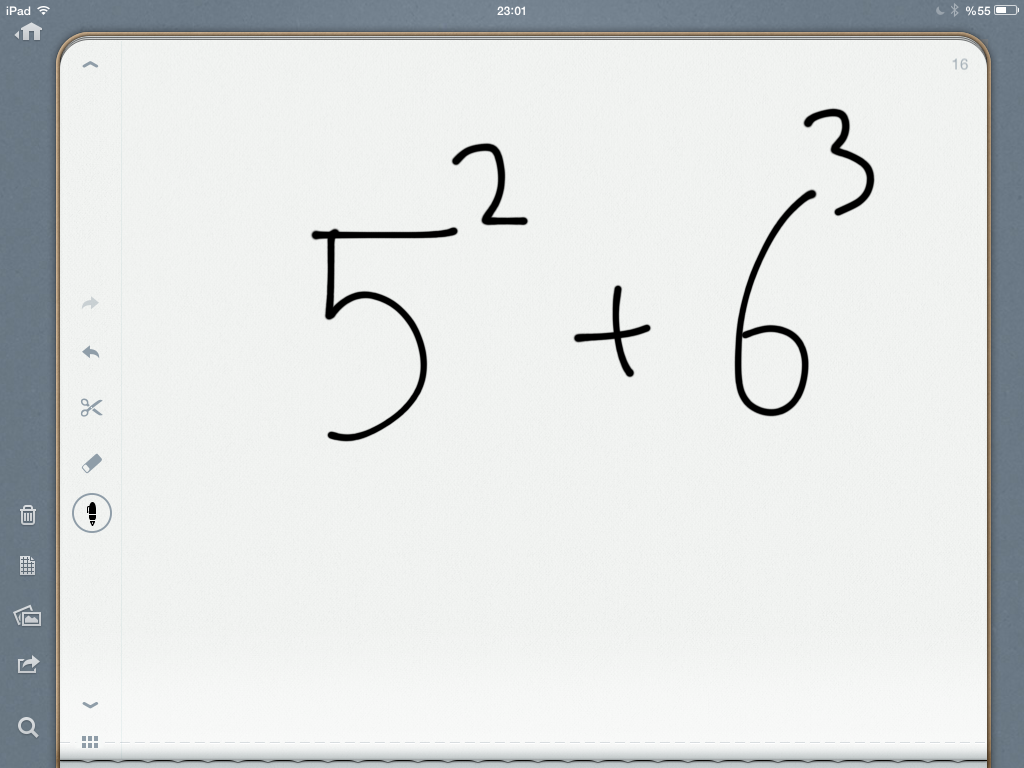 iPad 23:01 %55
16
5² + 6³